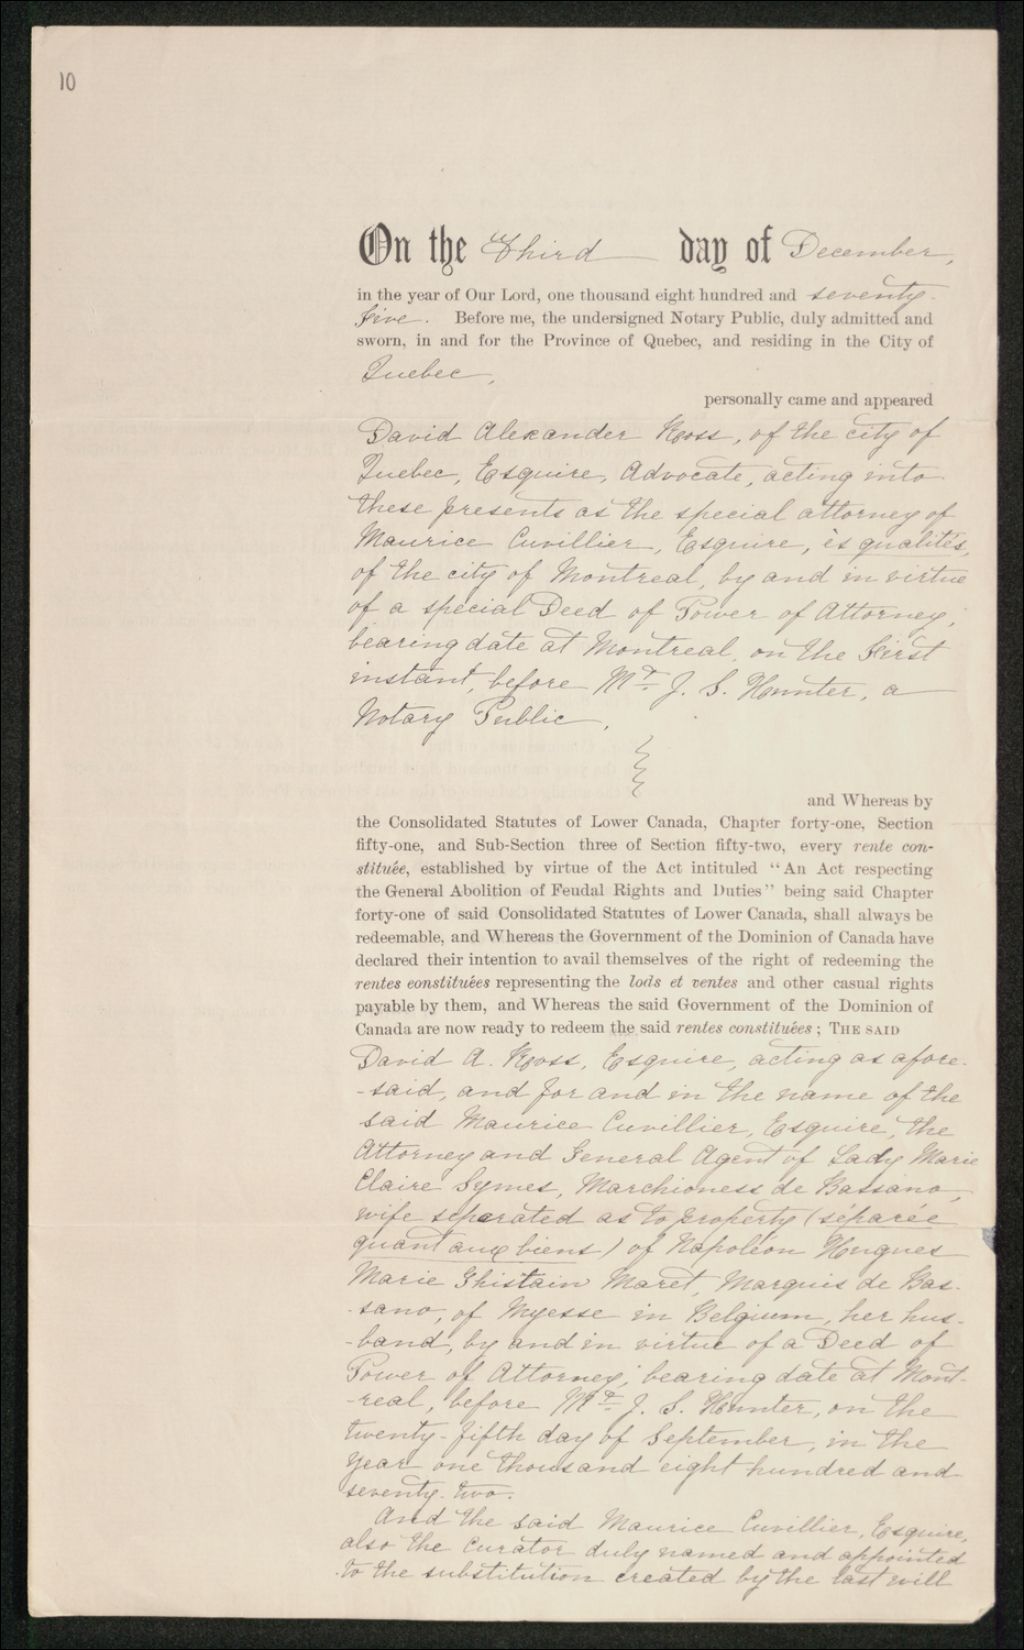 10
On the Third day of December,
in the year of Our Lord, one thousand eight hundred and seventy-
five. Before me, the undersigned Notary Public, duly admitted and
sworn, in and for the Province of Quebec, and residing in the City of
Quebec,
personally came and appeared
David Alexander Ross, of the city of
Quebec, Esquire, Advocate, acting into
these presents as the special attorney of
Maurice Cuvillier, Esquire, ès qualités,
of the city of Montreal, by and in virtue
of a special Deed of Power of Attorney,
bearing date at Montreal, on the First
instant, before Mtre J. S. Hunter, a
Notary Public,
and Whereas by
the Consolidated Statutes of Lower Canada, Chapter forty-one, Section
fifty-one, and Sub-Section three of Section fifty-two, every rente con-
stituée, established by virtue of the Act intituled "An Act respecting
the General Abolition of Feudal Rights and Duties" being said Chapter
forty-one of said Consolidated Statutes of Lower Canada, shall always be
redeemable, and Whereas the Government of the Dominion of Canada have
declared their intention to avail themselves of the right of redeeming the
rentes constituées representing the lods et ventes and other casual rights
payable by them, and Whereas the said Government of the Dominion of
Canada are now ready to redeem the said rentes constituées; THE SAID
David A. Ross, Esquire, acting as afore-
-said, and for and in the name of the
said Maurice Cuvillier, Esquire, the
Attorney and General Agent of Lady Marie
Claire Symes, Marchioness de Bassano,
wife separated as to property (séparée
quant aux biens) of Napoléon Hugues
Marie Ghislain Maret, Marquis de Bas-
-sano, of Myesse in Belgium, her hus-
-band, by and in virtue of a Deed of
Power of Attorney, bearing date at Mont-
-real, before Mtre J. S. Hunter, on the
twenty-fifth day of September, in the
year one thousand eight hundred and
seventy-two.
And the said Maurice Cuvillier, Esquire,
also the Curator duly named and appointed
to the substitution created by the last will